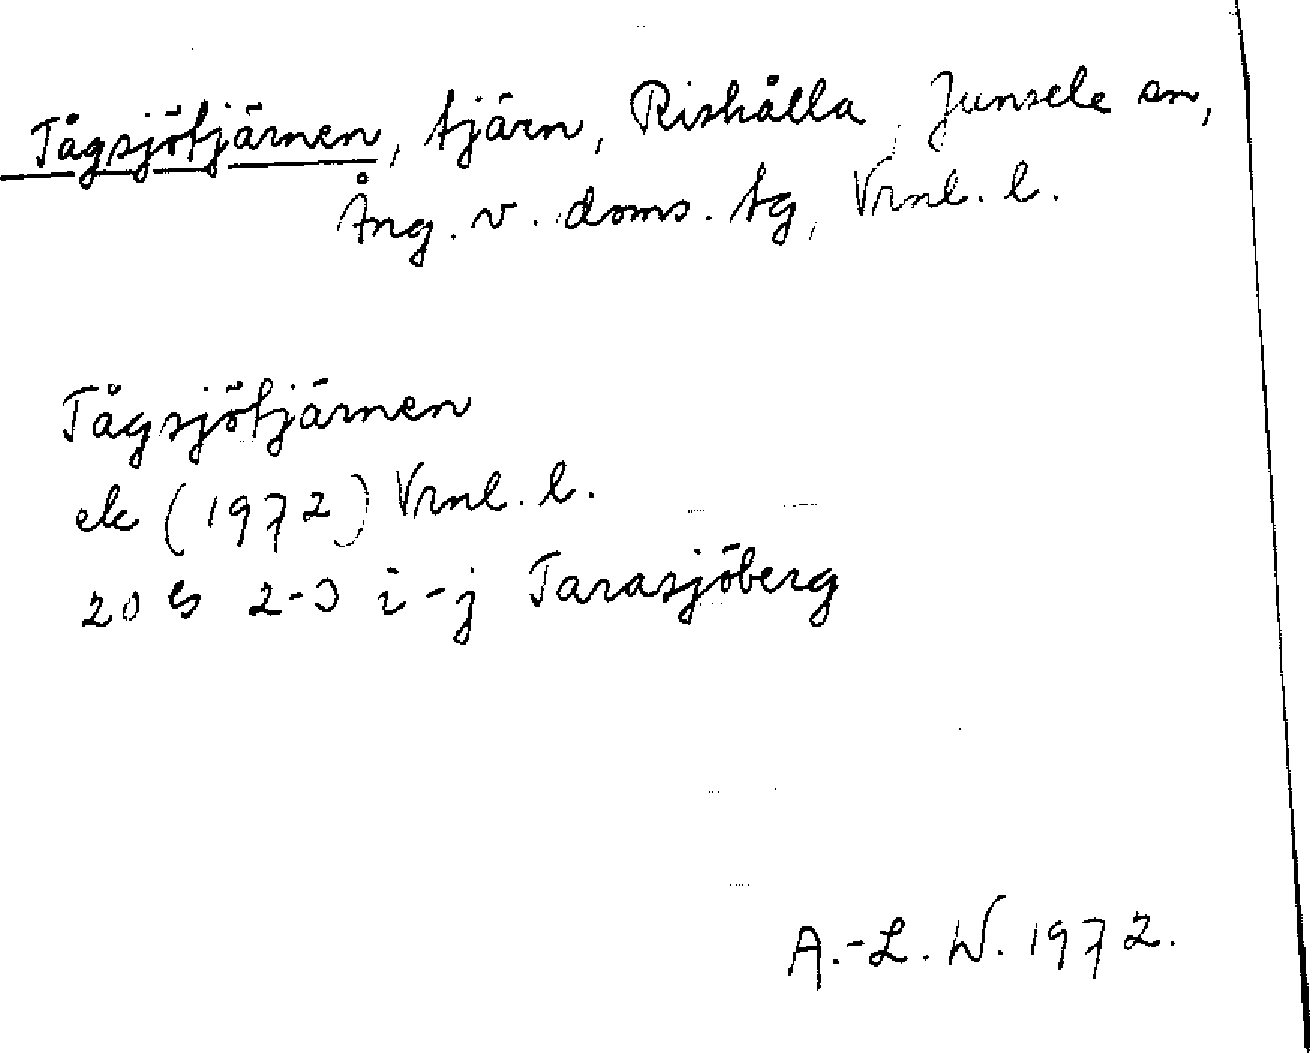 Tågsjötjärnen, tjärn, Riskålla, Junsele sn,
Ång. v. doms. tg, Vrnl. l.
Tågsjötjärnen
ek (1972) Vrnl. l.
20 G 2-3 i-j Tarasjöberg
A.-L. W. 1972.